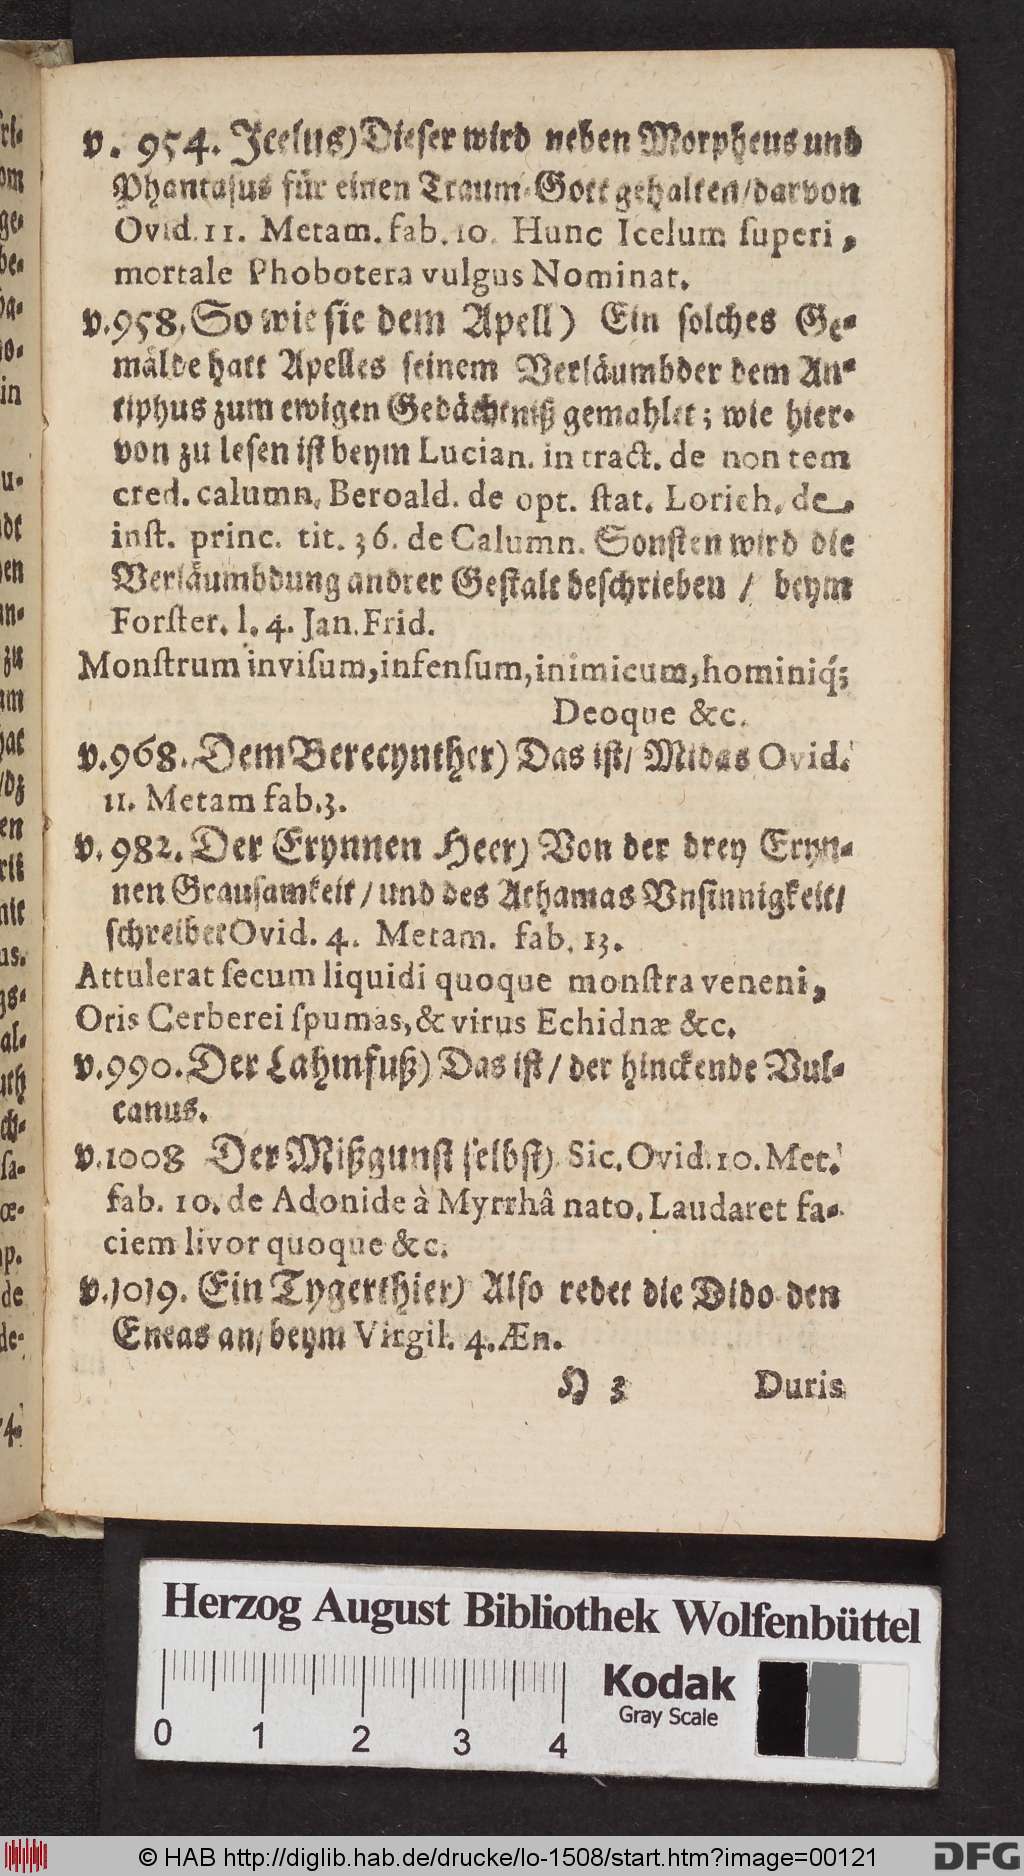 v. 954. Icelus) Dieser wird neben Morpheus und
Phantasus für einen Traum-Gott gehalten/darvon
Ovid. 11. Metam. fab. 10. Hunc Icelum superi,
mortale Phobotera vulgus Nominat.
v. 958. So wie sie dem Apell) Ein solches Ge-
mälde hatt Apelles seinem Verläumbder dem An-
tiphus zum ewigen Gedächtniß gemahlet; wie hier-
von zu lesen ist beym Lucian. in tract. de non tem
cred. calumn. Beroald. de opt. stat. Lorich. de
inst. princ. tit. 36. de Calumn. Sonsten wird die
Verläumbdung andrer Gestalt beschrieben / beym
Forster. l. 4. Jan. Frid.
Monstrum invisum, infensum, inimicum, hominiq́;
Deoque &c.
v. 968. Dem Berecynther) Das ist/ Midas Ovid.
11. Metam fab. 3.
v. 982. Der Erynnen Heer) Von der drey Eryn-
nen Grausamkeit / und des Athamas Vnsinnigkeit/
schreibet Ovid. 4. Metam. fab. 13.
Attulerat secum liquidi quoque monstra veneni,
Oris Cerberei spumas, & virus Echidnæ &c.
v. 990. Der Lahmfuß) Das ist / der hinckende Vul-
canus.
v. 1008 Der Mißgunst selbst) Sic. Ovid. 10. Met.
fab. 10. de Adonide à Myrrhâ nato. Laudaret fa-
ciem livor quoque &c.
v. 1019. Ein Tygerthier) Also redet die Dido den
Eneas an/ beym Virgil. 4. Æn.
H 3 Duris
Herzog August Bibliothek Wolfenbüttel
Kodak
Gray Scale
0 1 2 3 4
© HAB http://diglib.hab.de/drucke/lo-1508/start.htm?image=00121
DFG